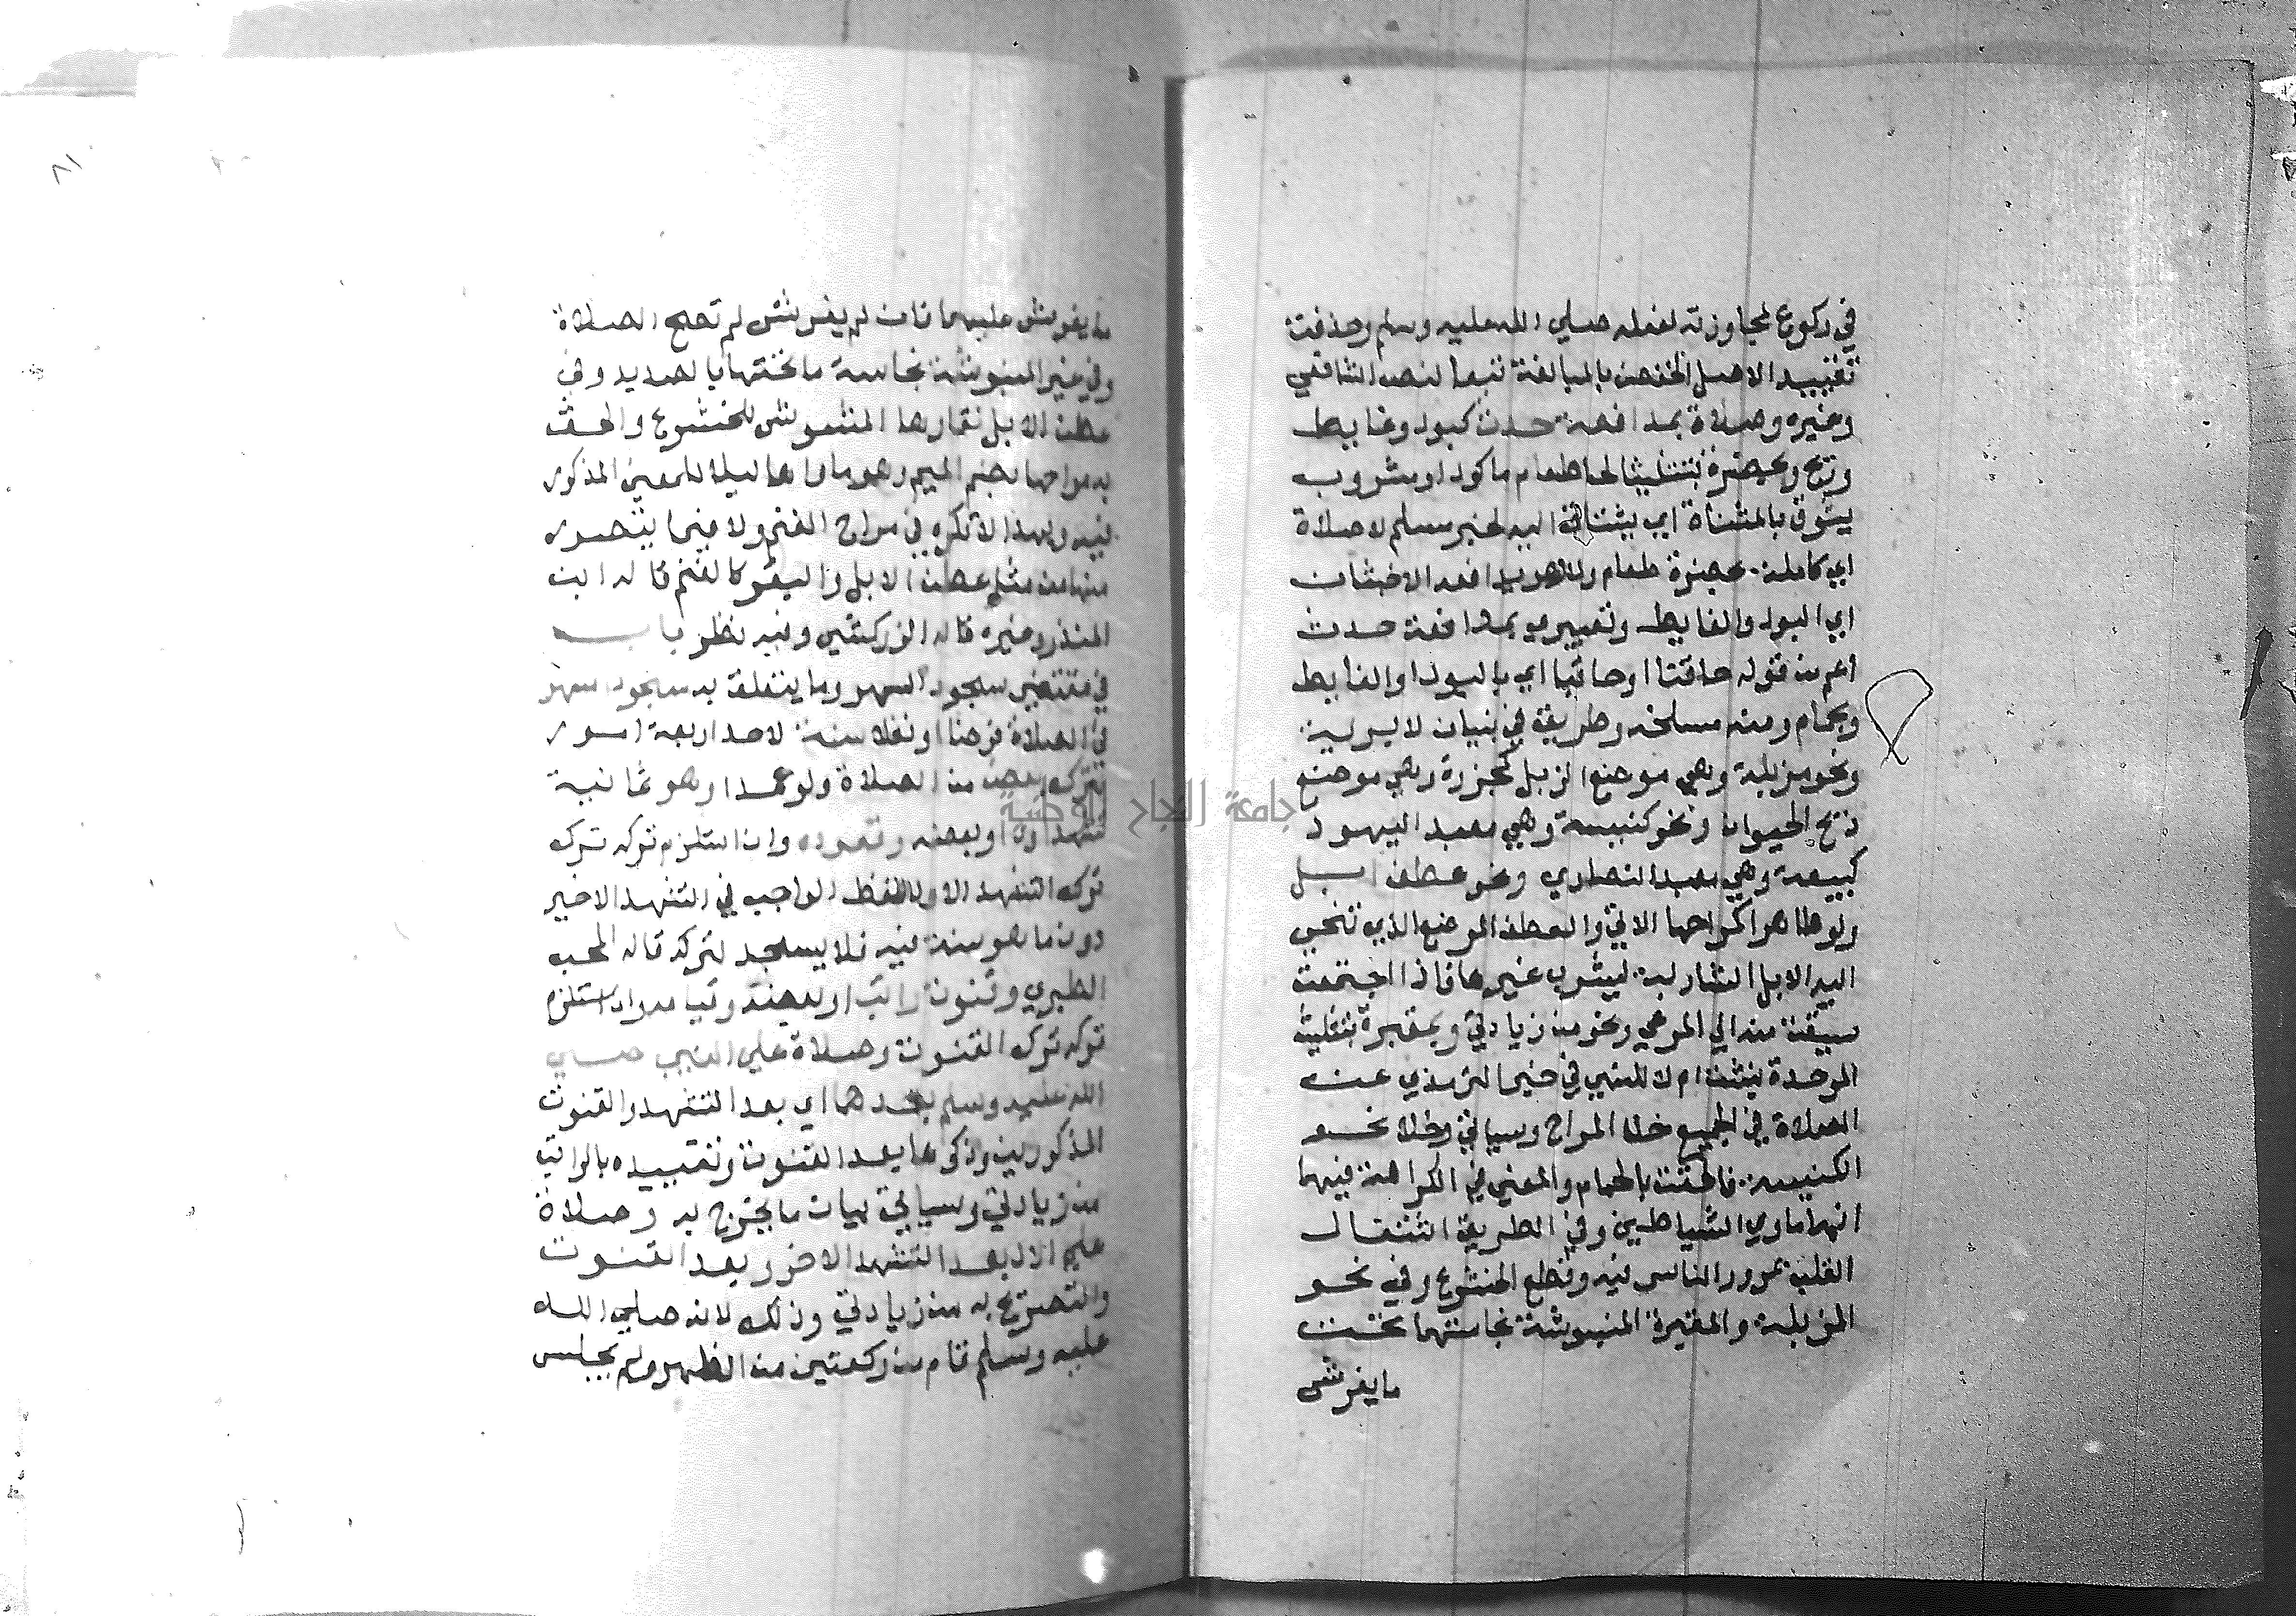 في ركوع لمجاوزته لفعله صلي الله عليه وسلم وحذفت
تقييد الاصل الخفض بالمبالغة تبعا لنص الشافعي
وغيره وصلاة بمدافعة حدث كبول وغايط
وريح وبحضرة بتثليث الحا طعام ماكول او مشروب
يتوق بالمثناة اي يشتاق اليه لخبر مسلم لا صلاة
اي كاملة بحضرة طعام ولا وهو يدافعه الاخبثان
اي البول والغايط وتعبيري بمدافعة حدث
اعم من قوله حاقنا او حاقبا اي بالبول او الغايط
وبحمام ومنه مسلخه وطريق في بنيان لا برية
ونحو مزبلة وهي موضع الزبل كمجزرة وهي موضع
ذبح الحيوان ونحو كنيسة وهي معبد اليهود
كبيعة وهي معبد النصاري ونحو عطن ابل
ولو طاهرا كمراحها الاتي والعطن الموضع الذي تنحي
اليه الابل الشاربة ليشرب غيرها فاذا اجتمعت
سيقت منه الي المرعي ونحو من زيادتي وبمقبرة بتثليث
الموحدة نبشت ام لا للنهي في خبر الترمذي عن
الصلاة في الجميع خلا المراح وسياتي وخلا نحو
الكنيسة فالحقت بالحمام والمعني في الكراهة فيهما
انهما ماوي الشياطين وفي الطريق اشتغال
القلب بمرور الناس فيه وقطع الخشوع وفي نحو
المزبلة والمقبرة المنبوشة نجاستهما تحت
ما يفرش
ما يفرش عليهما فان لم يفرش لم تصح الصلاة
وفي غير المنبوشة نجاسة ما تحتها بالصديد وفي
عطن الابل نفارها المشوش للخشوع والحق
به مراحها بضم الميم وهو ماواها ليلا للمعني المذكور
فيه ولهذا لا تكره في مراح الغنم ولا فيما يتصور
منها من مثل عطن الابل والبقر كالغنم قاله ابن
المنذر وغيره قاله الزركشي وفيه نظر باب
في مقتضي سجود السهو وما يتعلق به سجود السهو
في الصلاة فرضا او نفلا سنة لاحد اربعة امور
بترك بعض من الصلاة ولو عمدا وهو ثمانية
تشهد اول او بعضه وقعوده وان استلزم تركه ترك
ترك التشهد الاول اللفظ الواجب في التشهد الاخير
دون ما هو سنة فيه فلا يسجد لتركه قاله المحب
الطبري وقنوت راتب او بعضه وقيامه وان استلزم
تركه ترك القنوت وصلاة علي النبي صلي
الله عليه وسلم بعدهما اي بعد التشهد والقنوت
المذكورين وذكرها بعد القنوت وتقييده بالراتب
من زيادتي وسياتي بيان ما يخرج به وصلاة
علي الال بعد التشهد الاخر وبعد القنوت
والتصريح به من زيادتي وذلك لانه صلي الله
عليه وسلم قام من ركعتين من الظهر ولم يجلس
٨١
جامعة النجاح الوطنية